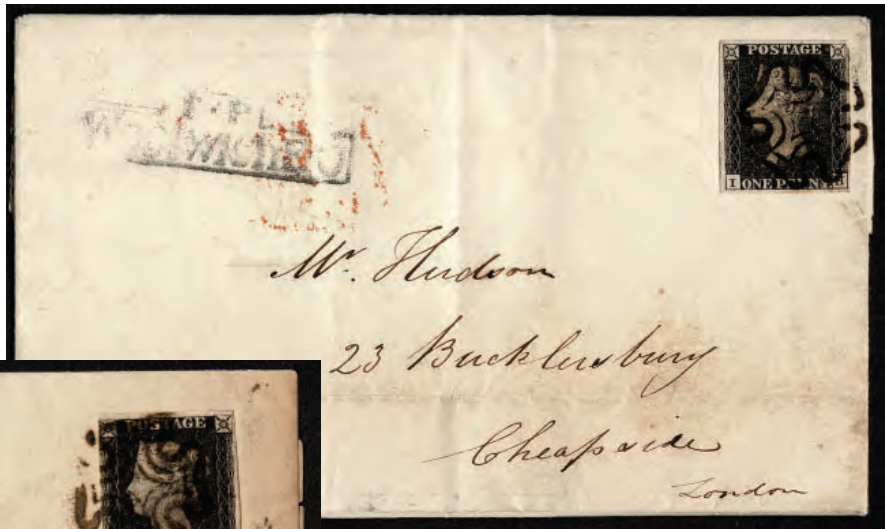 POSTAGE
I ONE PENNY
T.P
Mr. Hudson
23 Bucklersbury
Cheapside
London
POSTAGE